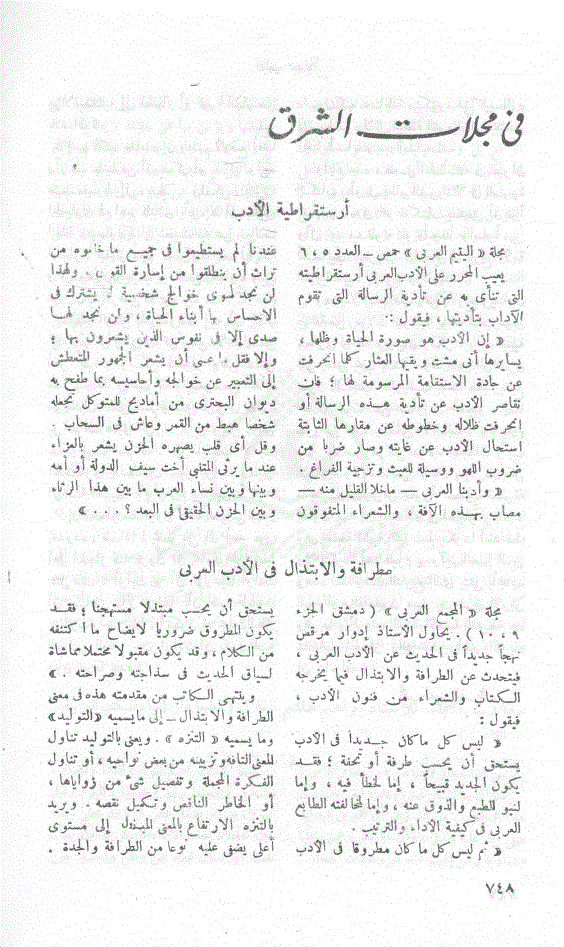 فى مجلات الشرق
أرستقراطية الأدب
مجلة « اليتيم العربى » حمص – العدد ٥ ، ٦
يعيب المحرر على الادب العربى أرستقراطيته
التى تنأى به عن تأدية الرسالة التى تقوم
الآداب بتأديتها ، فيقول :
« إن الأدب هو صورة الحياة وظلها ،
يسايرها أنى مشت ويقيها العثار كلما انحرفت
عن جادة الاستقامة المرسومة لها ؛ فان
تقاصر الأدب عن تأدية هذه الرسالة أو
انحرفت ظلاله وخطوطه عن مقارها الثابتة
استحال الأدب عن غايته وصار ضربا من
ضروب اللهو ووسيلة للعبث وتزجية الفراغ .
« وأدبنا العربى – ماخلا القليل منه –
مصاب بهذه الآفة ، والشعراء المتفوقون
عندنا لم يستطيعوا فى جميع ما خلفوه من
تراث أن ينطلقوا من إسارة القول ، ولهذا
لن تجد لهوى خوالج شخصية لا يشترك فى
الاحساس بها أبناء الحياة ، ولن تجد لهما
صدى إلا فى نفوس الذين يشعرون بها ؛
وإلا فقل ما عسى أن يشعر الجمهور المتعطش
إلى التعبير عن خوالجه وأحاسيسه بما طفح به
ديوان البحترى من أماديح للمتوكل تجعله
شخصا هبط من القمر وعاش فى السحاب .
وقل أى قلب يصهره الحزن يشعر بالعزاء
عند ما يرثى المتنبى أخت سيف الدولة أو أمه
وبينها وبين نساء العرب ما بين هذا الرثاء
وبين الحزن الحقيقى فى البعد ؟ . . . »
الطرافة والابتذال فى الأدب العربى
مجلة « المجمع العربى » ( دمشق الجزء
٩ ، ١٠ ) . يحاول الاستاذ إدوار مرقص
نهجاً جديداً فى الحديث عن الأدب العربى ،
فيتحدث عن الطرافة والابتذال فيما يخرجه
الكتاب والشعراء من فنون الأدب ،
فيقول :
« ليس كل ما كان جديداً فى الأدب
يستحق أن يحسب طرفة أو تحفة ؛ فقد
يكون الجديد قبيحاً ، إما لخطأ فيه ، وإما
لنبو الطبع والذوق عنه ، وإما لمخالفته الطابع
العربى فى كيفية الأداء والترتيب .
« ثم ليس كل ما كان مطروقا فى الأدب
يستحق أن يحسب مبتذلا مستهجنا ؛ فقد
يكون المطروق ضروريا لايضاح ما اكتنفه
من الكلام ، وقد يكون مقبولا محتملا مماشاة
لسياق الحديث فى سذاجته وصراحته . »
وينتهى الكاتب من مقدمته هذه فى معنى
الطرافة والابتذال – إلى ما يسميه « التوليد »
وما يسميه « التنزه » . ويعنى بالتوليد تناول
المعنى التافه وتزيينه من بعض نواحيه ، أو تناول
الفكرة المجملة وتفصيل شئ من زواياها ،
أو الخاطر الناقص وتكميل نقصه . ويريد
بالتنزه الارتفاع بالمعنى المبتذل إلى مستوى
أعلى يضفى عليه نوعا من الطرافة والجدة .
٧٤٨